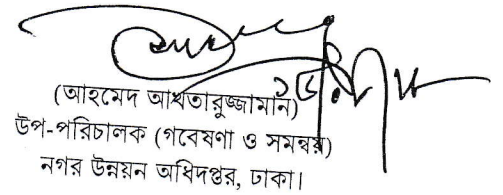 (আহমেদ আখতারুজ্জামান)
উপ-পরিচালক (গবেষণা ও সমন্বয়)
নগর উন্নয়ন অধিদপ্তর, ঢাকা।